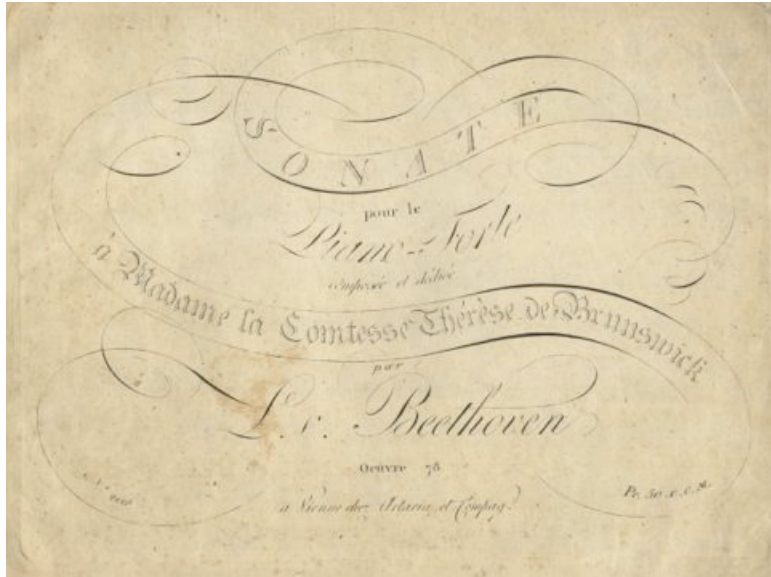 SONATE
pour le
Piano-Forte
composée et dediée
à Madame la Comtesse Thérèse de Brunswick
par
L. v. Beethoven
Oeuvre 78
a Vienne chez Artaria et Compag.